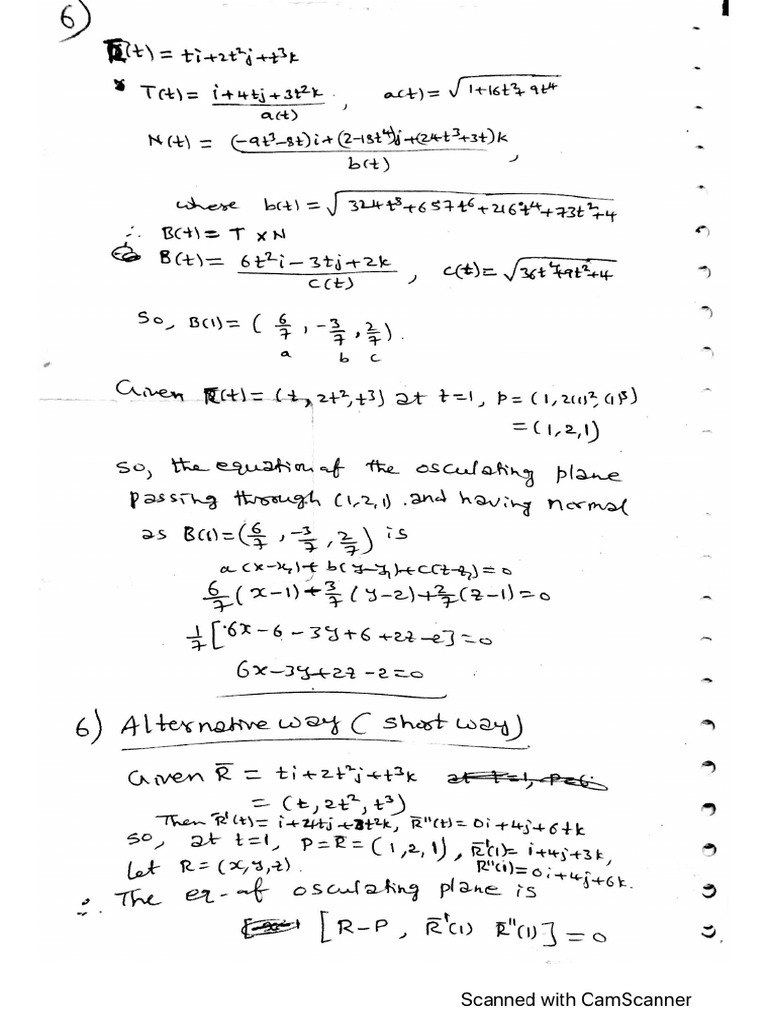 6)
R̄(t) = ti+2t²j+t³k
* T(t) = (i+4tj+3t²k)/a(t) , a(t) = √(1+16t²+9t⁴)
N(t) = ((-9t³-8t)i+(2-18t⁴)j+(24t³+3t)k)/b(t) ,
where b(t) = √(324t⁸+657t⁶+216t⁴+73t²+4)
∴ B(t) = T × N
B(t) = (6t²i-3tj+2k)/c(t) , c(t) = √(36t⁴+9t²+4)
So, B(1) = (6/7, -3/7, 2/7).
a b c
Given R̄(t) = (t, 2t², t3) at t=1, P = (1, 2(1)², (1)³)
= (1,2,1)
So, the equation of the osculating plane
passing through (1,2,1) and having normal
as B(1) = (6/7, -3/7, 2/7) is
a(x-x₁)+b(y-y₁)+c(z-z₁)=0
6/7(x-1)+-3/7(y-2)+2/7(z-1)=0
1/7[6x-6-3y+6+2z-2]=0
6x-3y+2z-2=0
6) Alternative way (short way)
Given R̄ = ti+2t²j+t³k at t=1, P=(
= (t, 2t², t³)
Then R̄'(t) = i+4tj+3t²k, R̄"(t) = 0i+4j+6tk
So, at t=1, P=R̄=(1,2,1), R̄'(1)=i+4j+3k,
Let R=(x,y,z). R̄"(1)=0i+4j+6k.
∴ The eq- of osculating plane is
[R-P, R̄'(1) R̄"(1)]=0
Scanned with CamScanner